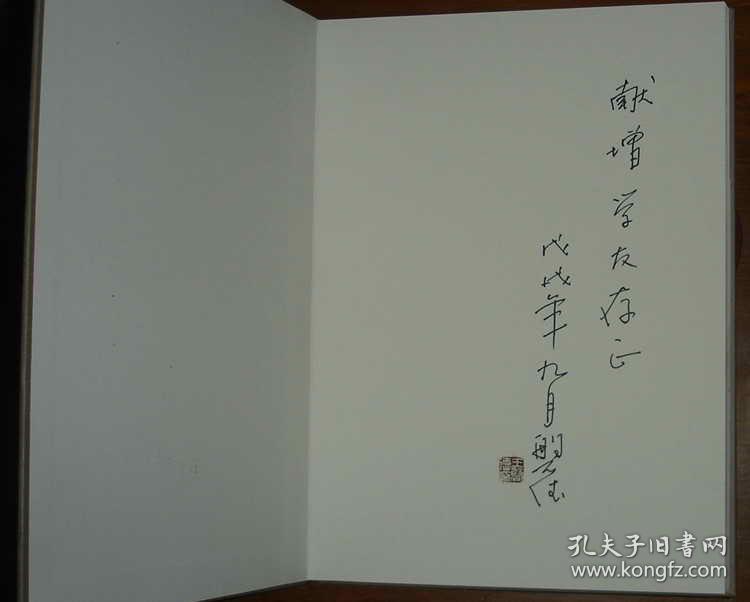 献增学友存正
戊戌年九月
孔夫子旧書网
www.kongfz.com